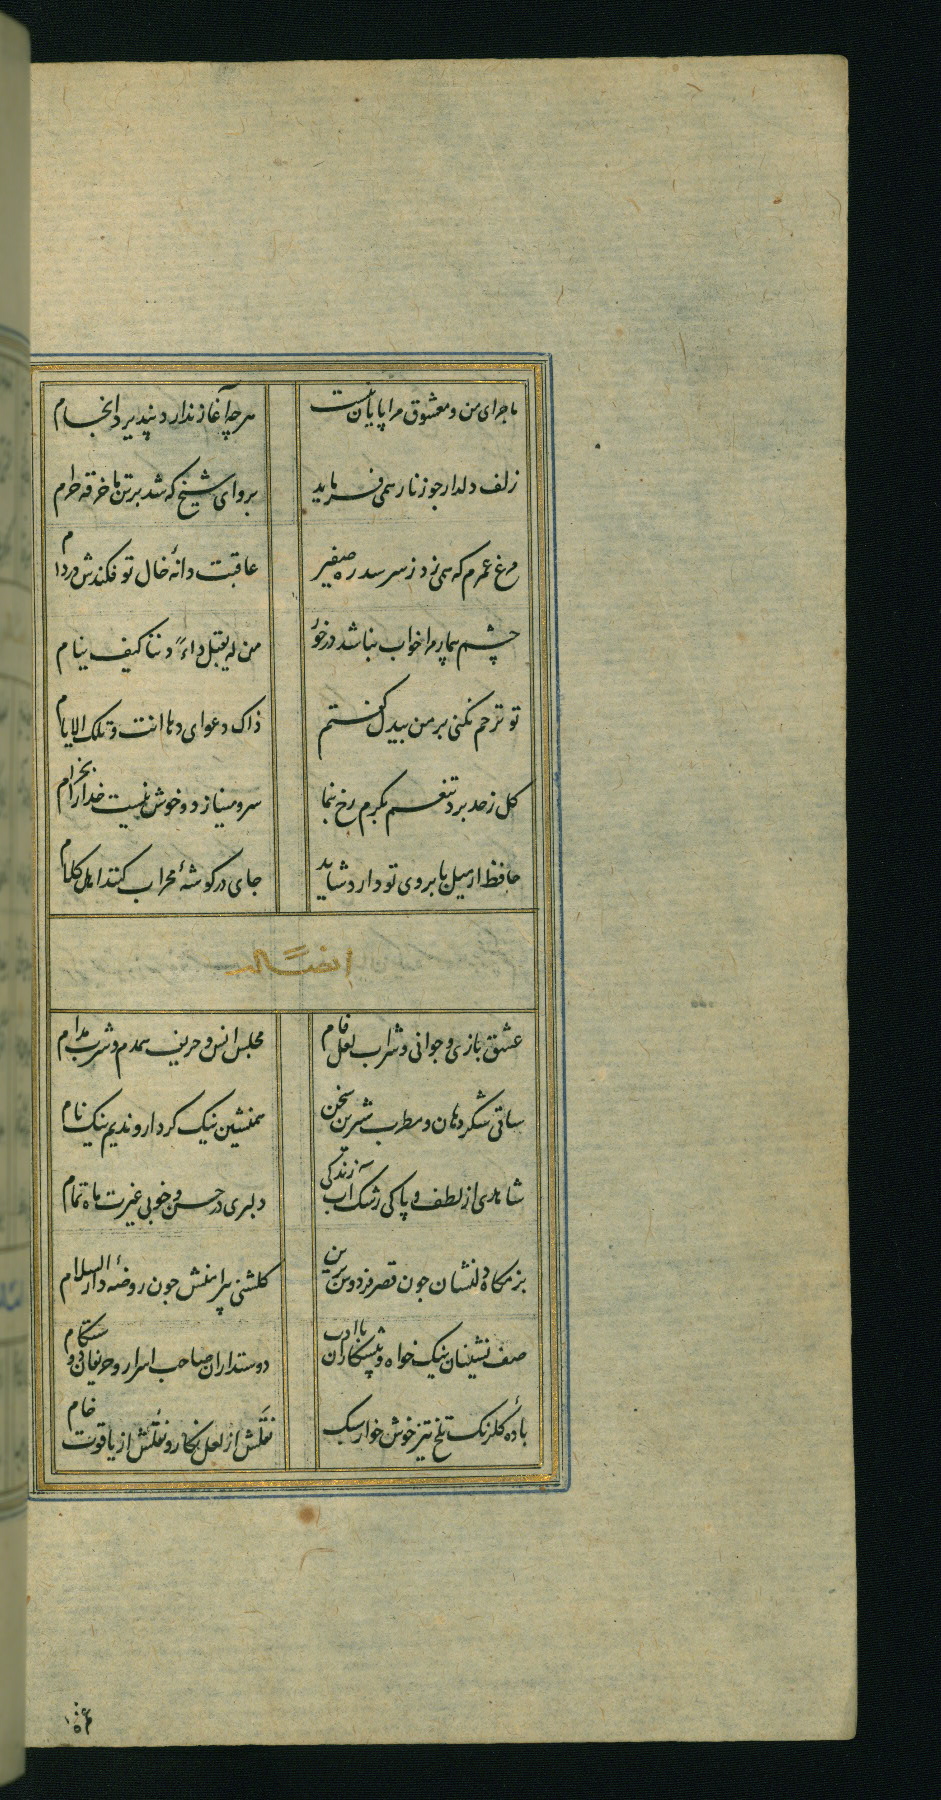 ماجرای من و معشوق مرا پایان نیست
هرچه آغاز ندارد نپذیرد انجام
زلف دلدار چو زنار همی فرماید
برو ای شیخ که شد بر تن ما خرقه حرام
مرغ عمرم که همی زد ز سر سدره صفیر
عاقبت دانهٔ خال تو فکندش در دام
چشم بیمار مرا خواب نباشد در خور
من له یقتل داءً دنفا کیف ینام
تو ترحم نکنی بر من بیدل گفتم
ذاک دعوای و ها انت و تلک الایام
کل ز حد برد تنعم بکرم رخ بنما
سرو مینازد و خوش نیست خدا را بخرام
حافظ ار میل بابروی تو دارد شاید
جای در کوشهٔ محراب کنند اهل کلام
ایضاً له
عشق بازی و جوانی و شراب لعل فام
مجلس انس و حریف همدم و شرب مدام
ساقی شکر دهان و مطرب شیرین سخن
همنشین نیک کردار و ندیم نیک نام
شاهدی از لطف و پاکی رشک آب زندکی
دلبری در حسن و خوبی غیرت ماه تمام
بزمکاه دلنشان جون قصر فردوس برین
کلشنی پیرامنش جون روضهٔ دار السلام
صف نشینان نیک خواه و پیشکاران با ادب
دوستداران صاحب اسرار و حریفان دوستکام
بادهٔ کلرنک تلخ تیز خوش خوار سبک
نقلش از لعل نکار و نقلش از یاقوت خام